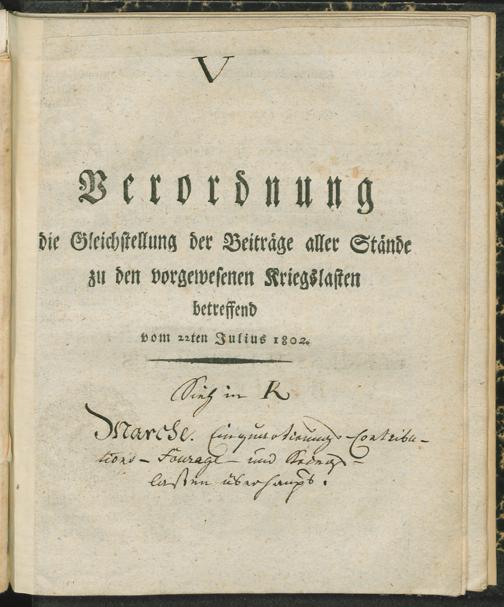 V
Verordnung
die Gleichstellung der Beiträge aller Stände
zu den vorgewesenen Kriegslasten
betreffend
vom 22ten Julius 1802.
Sieh in K
Marche. Einquartierungs-Contribu-
tions- Fourage und Krieges-
lasten überhaupt.